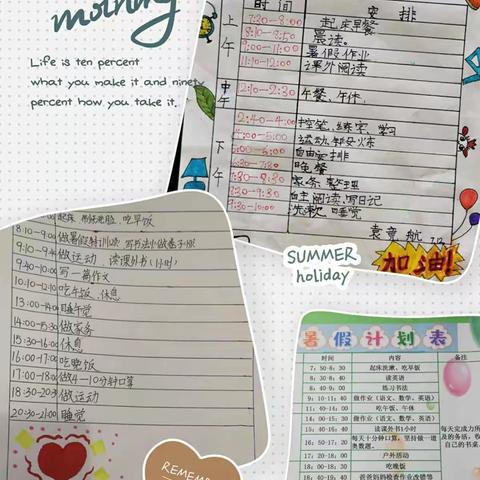 morning
Life is ten percent
what you make it and ninety
percent how you take it.
时间 安排
上午
7:20—8:00 起床早餐
8:10—8:50 晨读。
9:00—11:00 暑假作业
11:10—12:00 课外阅读
中午
12:10—2:30 午餐、午休,
下午
2:40—4:00 控笔、练字、
自由安排
晚餐
家务、整理
自主阅读、写日记
9:30—10:00 洗漱、睡觉
加油!
SUMMER
holiday
吃早饭
8:10-9:00
9:10-9:40 做运动、读课外书(1小时)
9:40-10:00 写一篇作文
10:10-12:10 吃午饭、休息
13:00-14:00 睡午觉
14:00-15:30 做家务
15:30-16:00 休息
16:00-17:00 吃晚饭
17:00-18:00 做4-10分钟口算
18:30-20:30 做运动
20:30-21:00 睡觉
REMEMB
暑假计划表
时间 内容 备注
7:50-8:30 起床洗漱、吃早饭
8:30-8:40 读英语
8:40-9:00 练习书法
9:10-11:40 做作业(语文、数学、英语)
11:40-14:00 吃午饭、午休
14:00-15:40 做作业(语文、数学、英语)
15:40-16:40 读课外书1小时
16:50-17:20 每天十分钟口算,坚持做一道奥数题。
17:20-18:00 户外活动
18:00-18:40 吃晚饭
18:40-19:40 爸爸妈妈检查作业改错等
每天完成力所
及的务活,收
自己的书桌。